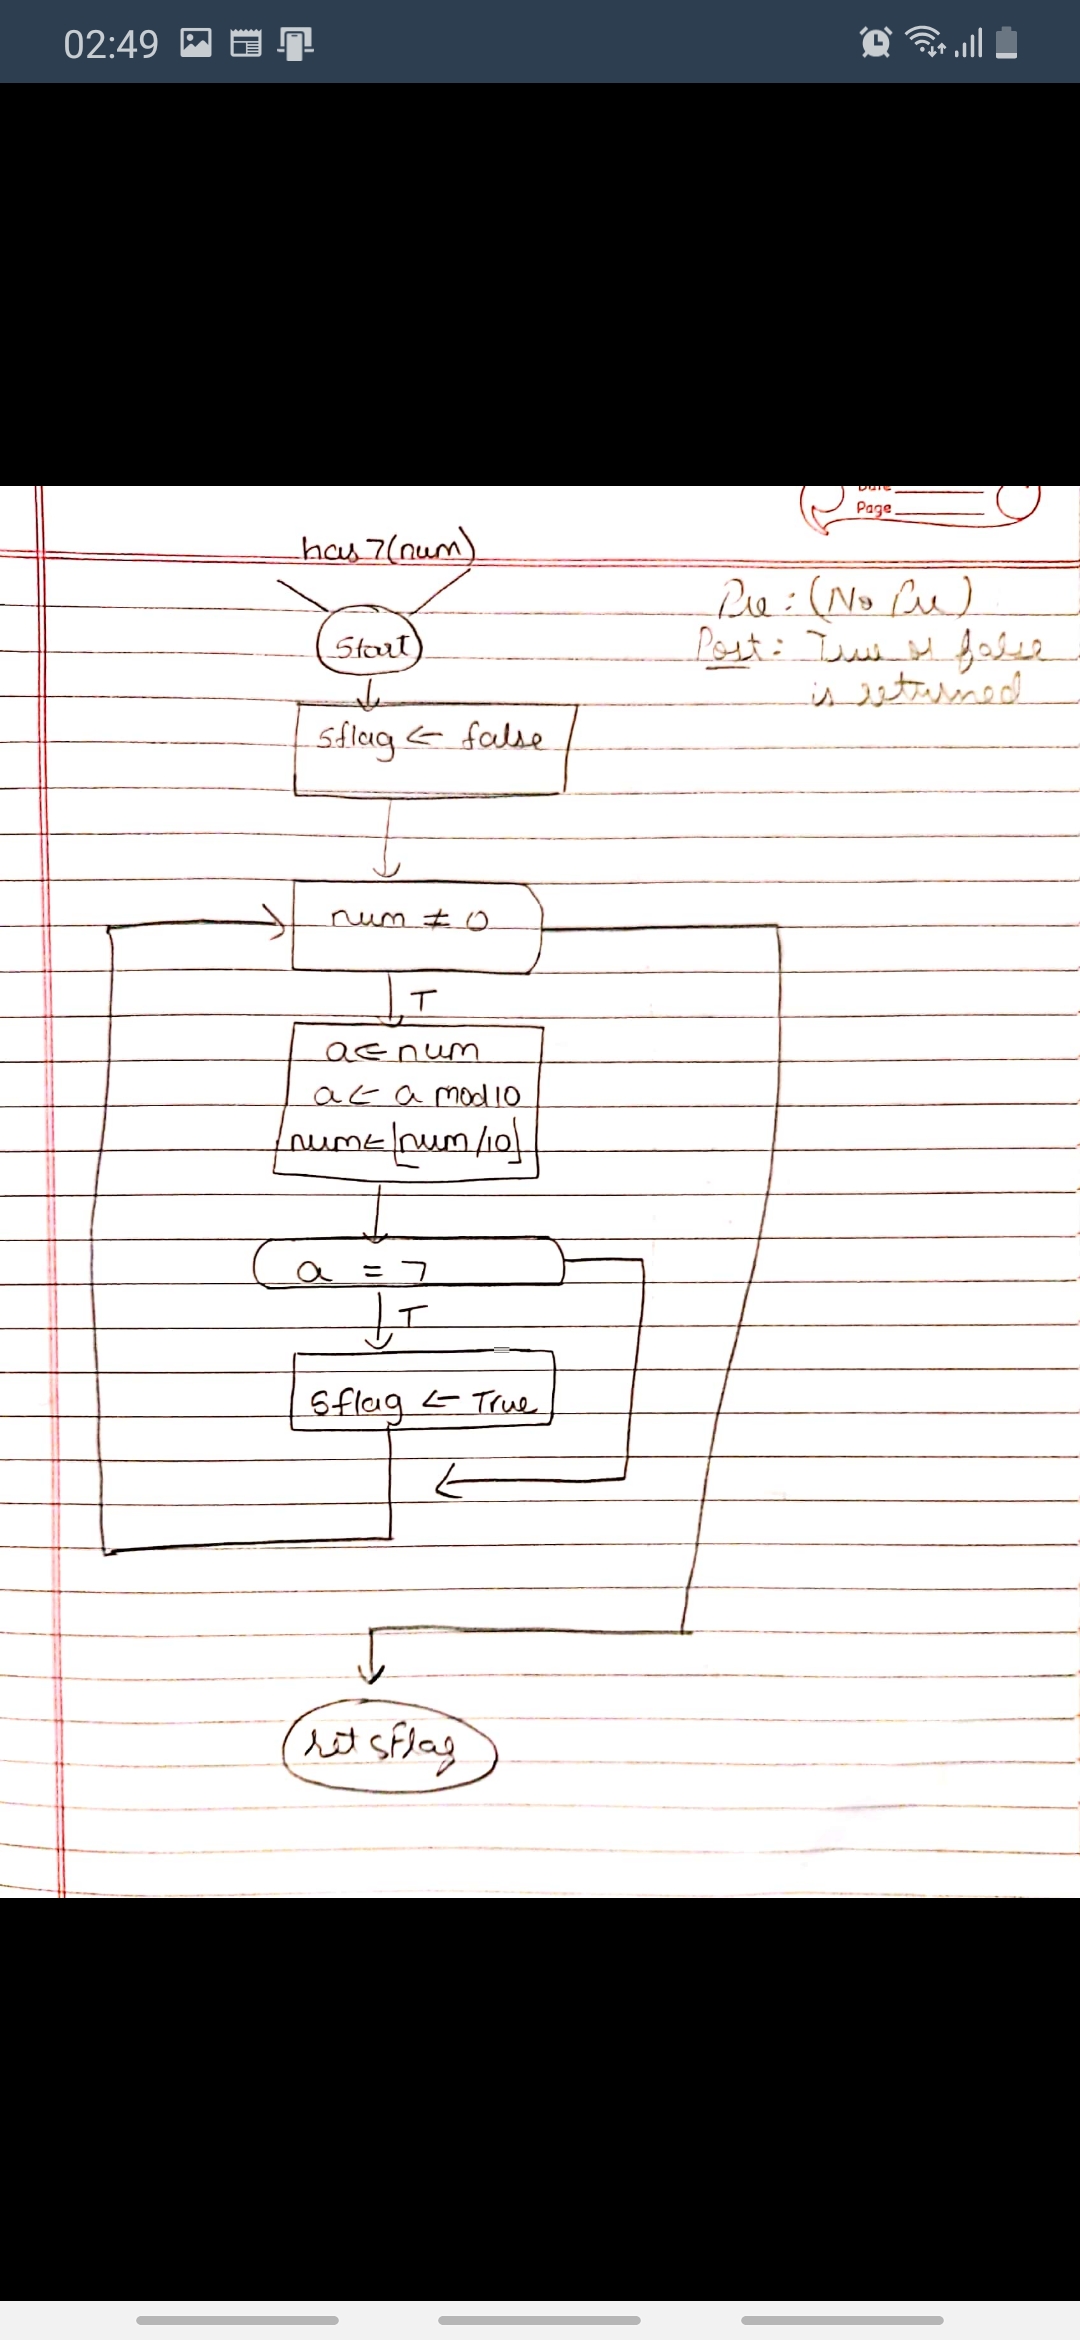 02:49
Date
Page
has 7(num)
Pre : (No Pre)
Start
Post : True or false
is returned
sflag ← false
num ≠ 0
T
a ← num
a ← a mod 10
num ← ⌊num/10⌋
a = 7
T
sflag ← True
ret sflag